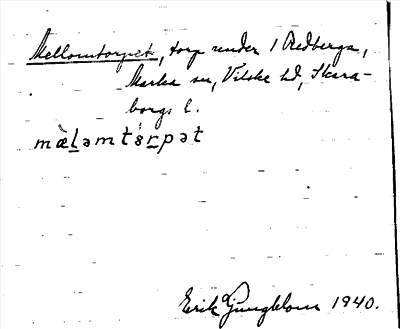 Mellomtorpet, torp under 1 Redberga,
Marka sn, Vilske hd, Skara-
borgs l.
mæ̀l̠əmtɜ́r̠pət
Erik Ljungblom 1940.